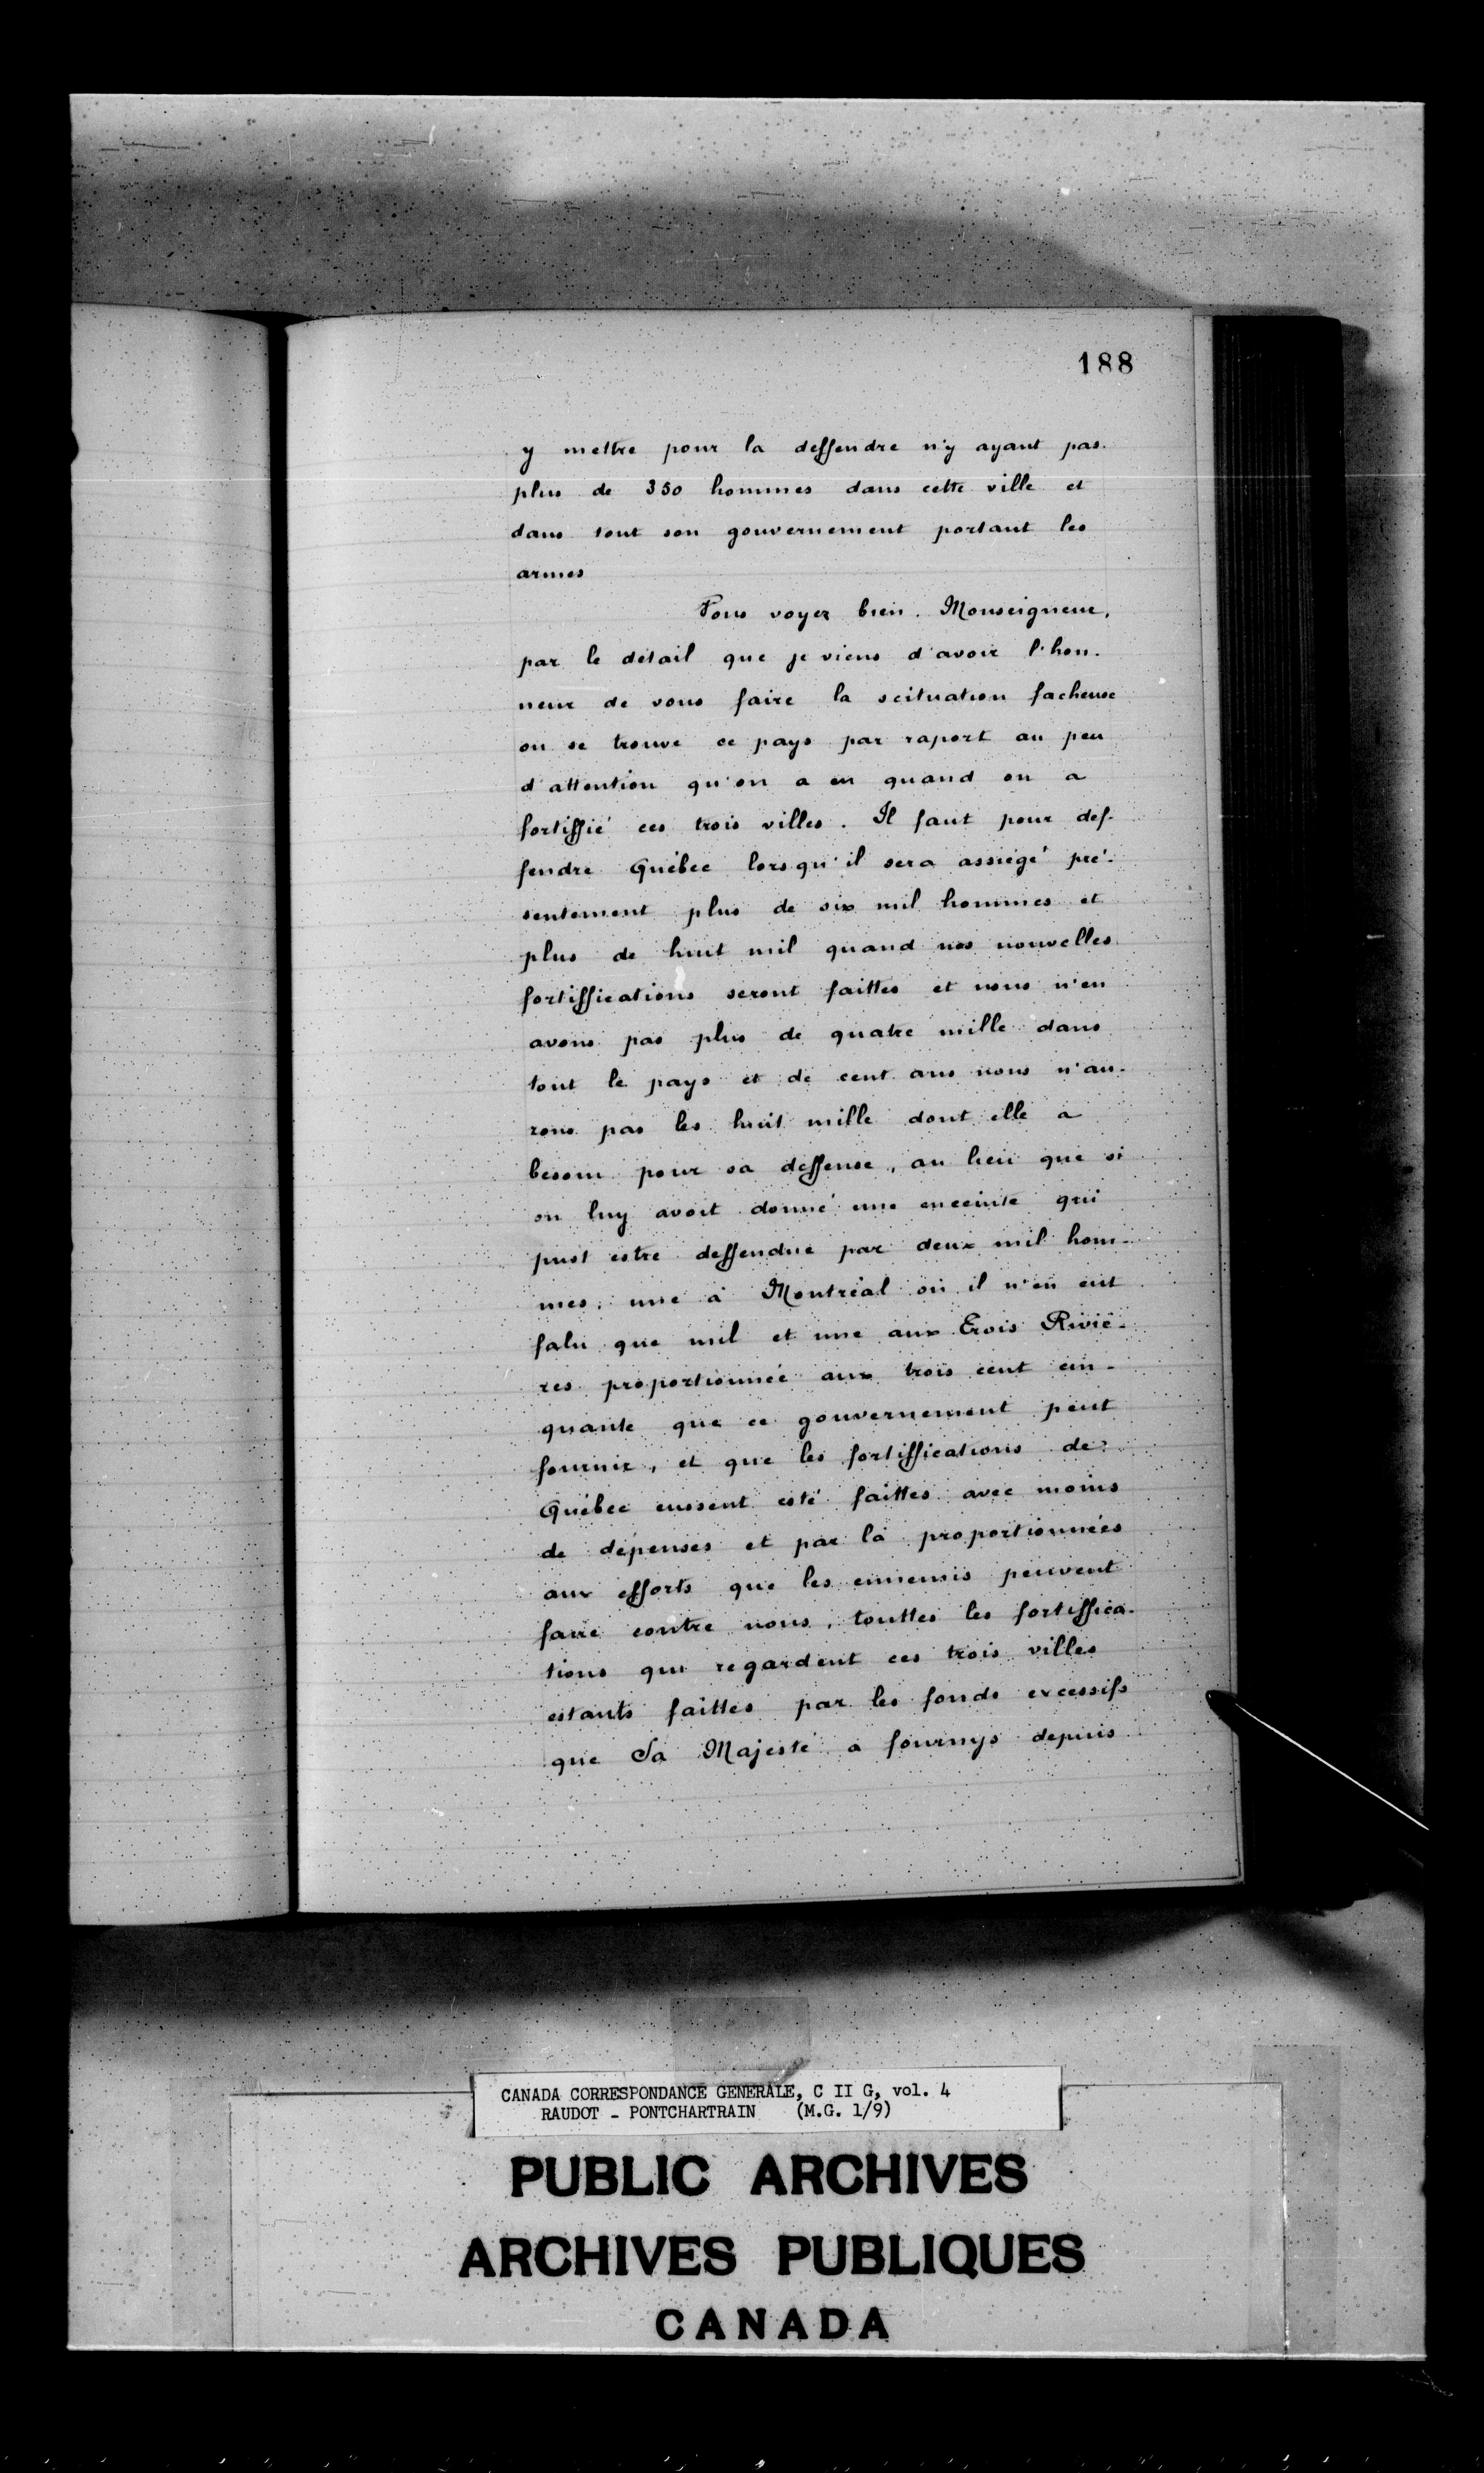 188
y mettre pour la deffendre n'y ayant pas
plus de 350 hommes dans cette ville et
dans tout son gouvernement portant les
armes
Vous voyez bien. Monseigneur,
par le détail que je viens d'avoir l'hon-
neur de vous faire la scituation facheuse
ou se trouve ce pays par raport au peu
d'attention qu'on a eu quand on a
fortiffié ces trois villes. Il faut pour def-
fendre Québec lorsqu'il sera assiégé pré-
sentement plus de six mil hommes et
plus de huit mil quand nos nouvelles
fortiffications seront faittes et nous n'en
avons pas plus de quatre mille dans
tout le pays et de cent ans nous n'au-
rons pas les huit mille dont elle a
besoin pour sa deffense, au lieu que si
on luy avoit donné une enceinte qui
pust estre deffendue par deux mil hom-
mes, une à Montréal où il n'en eut
falu que mil et une aux Trois Riviè-
res proportionnée aux trois cent cin-
quante que ce gouvernement peut
fournir, et que les fortiffications de
Québec eussent esté faittes avec moins
de dépenses et par là proportionnées
aux efforts que les ennemis peuvent
faire contre nous, touttes les fortiffica-
tions qui regardent ces trois villes
estants faittes par les fonds excessifs
que Sa Majesté a fournys depuis
CANADA CORRESPONDANCE GENERALE, C II G, vol. 4
RAUDOT - PONTCHARTRAIN (M.G. 1/9)
PUBLIC ARCHIVES
ARCHIVES PUBLIQUES
CANADA